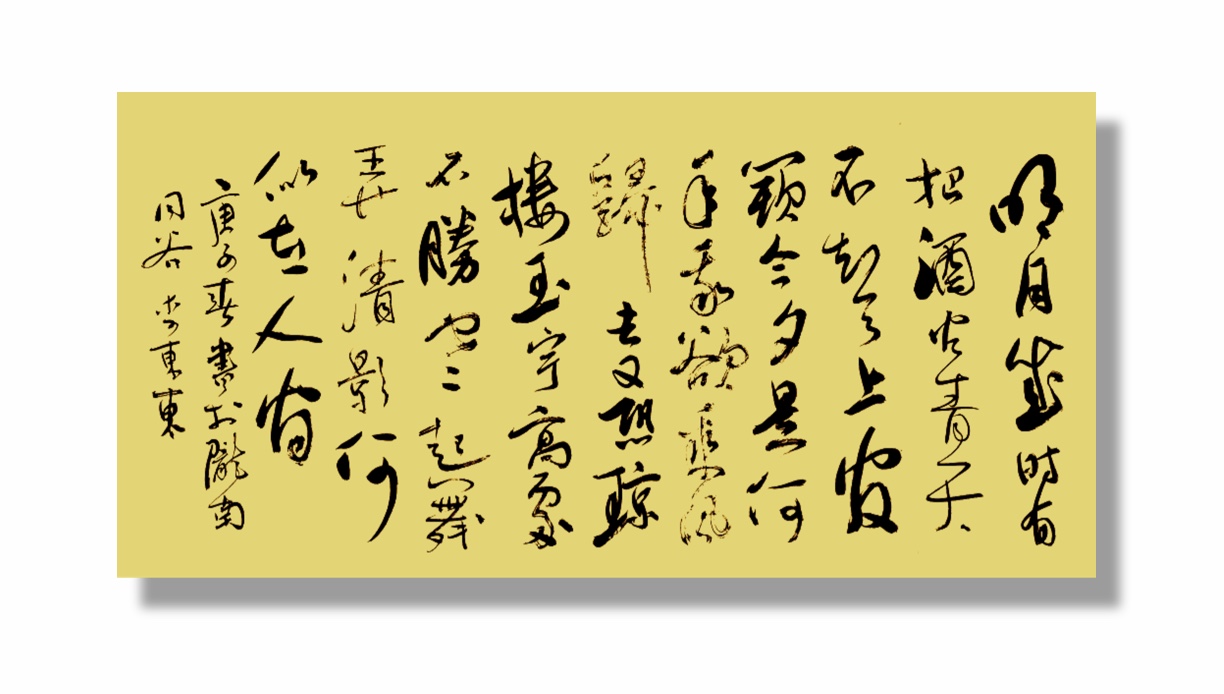 明月幾时有
把酒问青天
不知天上宫
闕今夕是何
年我欲乘風
歸去又恐瓊
樓玉宇高處
不勝寒起舞
弄清影何
似在人间
庚子春書於隴南
同谷李東東